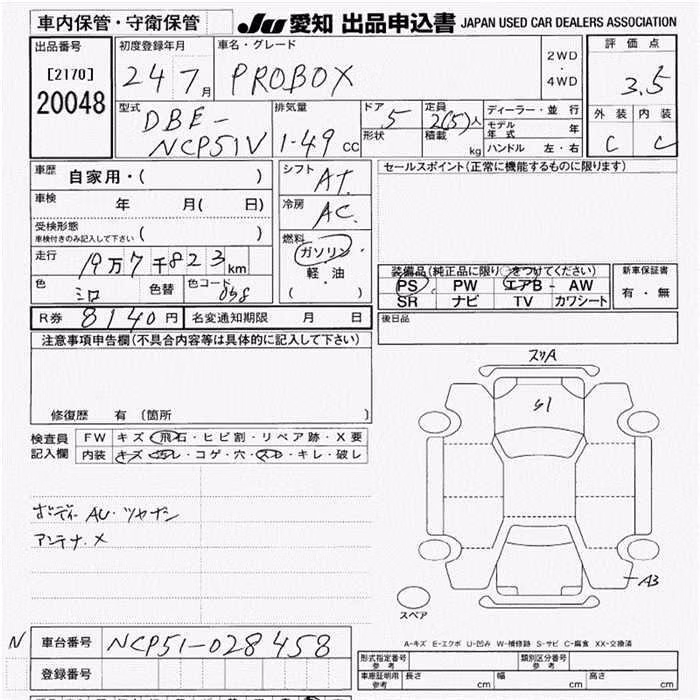 車内保管・守衛保管 JU 愛知 出品申込書 JAPAN USED CAR DEALERS ASSOCIATION
出品番号 初度登録年月 車名・グレード 評価点
[2170] 24 7月 PROBOX 2WD・4WD 3.5
20048
型式 排気量 ドア 定員 ディーラー・並行 外装 内装
DBE-NCP51V 1-49cc 5 2(5)人 モデル年式 年 C C
形状 積載 kg ハンドル 左・右
車歴 自家用・( ) シフト AT. セールスポイント(正常に機能するものに限ります)
車検 年 月( 日) 冷房 AC.
受検形態 車検付きのみ記入して下さい ( ) 燃料 ガソリン・軽油 ( )
走行 19万7千823km
装備品(純正品に限り○をつけてください) 新車保証書
色 シロ 色替 色コード 058 PS PW エアB AW 有・無
SR ナビ TV カワシート
R券 8140円 名変通知期限 月 日 後日品
注意事項申告欄(不具合内容等は具体的に記入して下さい)
スリA
S1
修復歴 有 (箇所 )
検査員記入欄 FW キズ・飛石・ヒビ割・リペア跡・X要
内装 キズ・汚レ・コゲ・穴・スレ・キレ・破し
ボディー AU・ツヤナシ
アンテナ.X
A3
スペア
A-キズ E-エクボ U-凹み W-補修跡 S-サビ C-腐食 XX-交換済
N 車台番号 NCP51-028458
登録番号
形式指定番号 参考 類別区分番号 参考
車庫証明用 参考 長さ cm 幅 cm 高さ cm